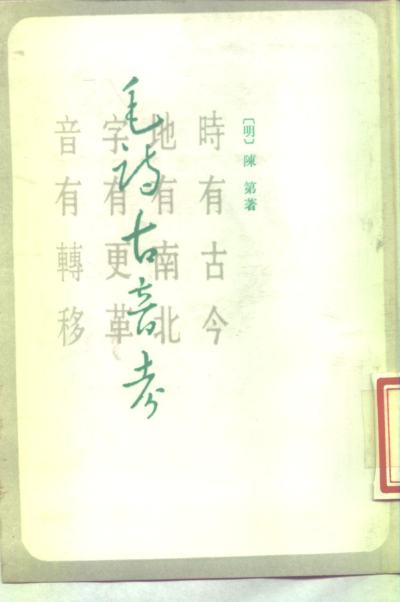 〔明〕陳 第著
時有古今
地有南北
字有更革
音有轉移
毛詩古音考